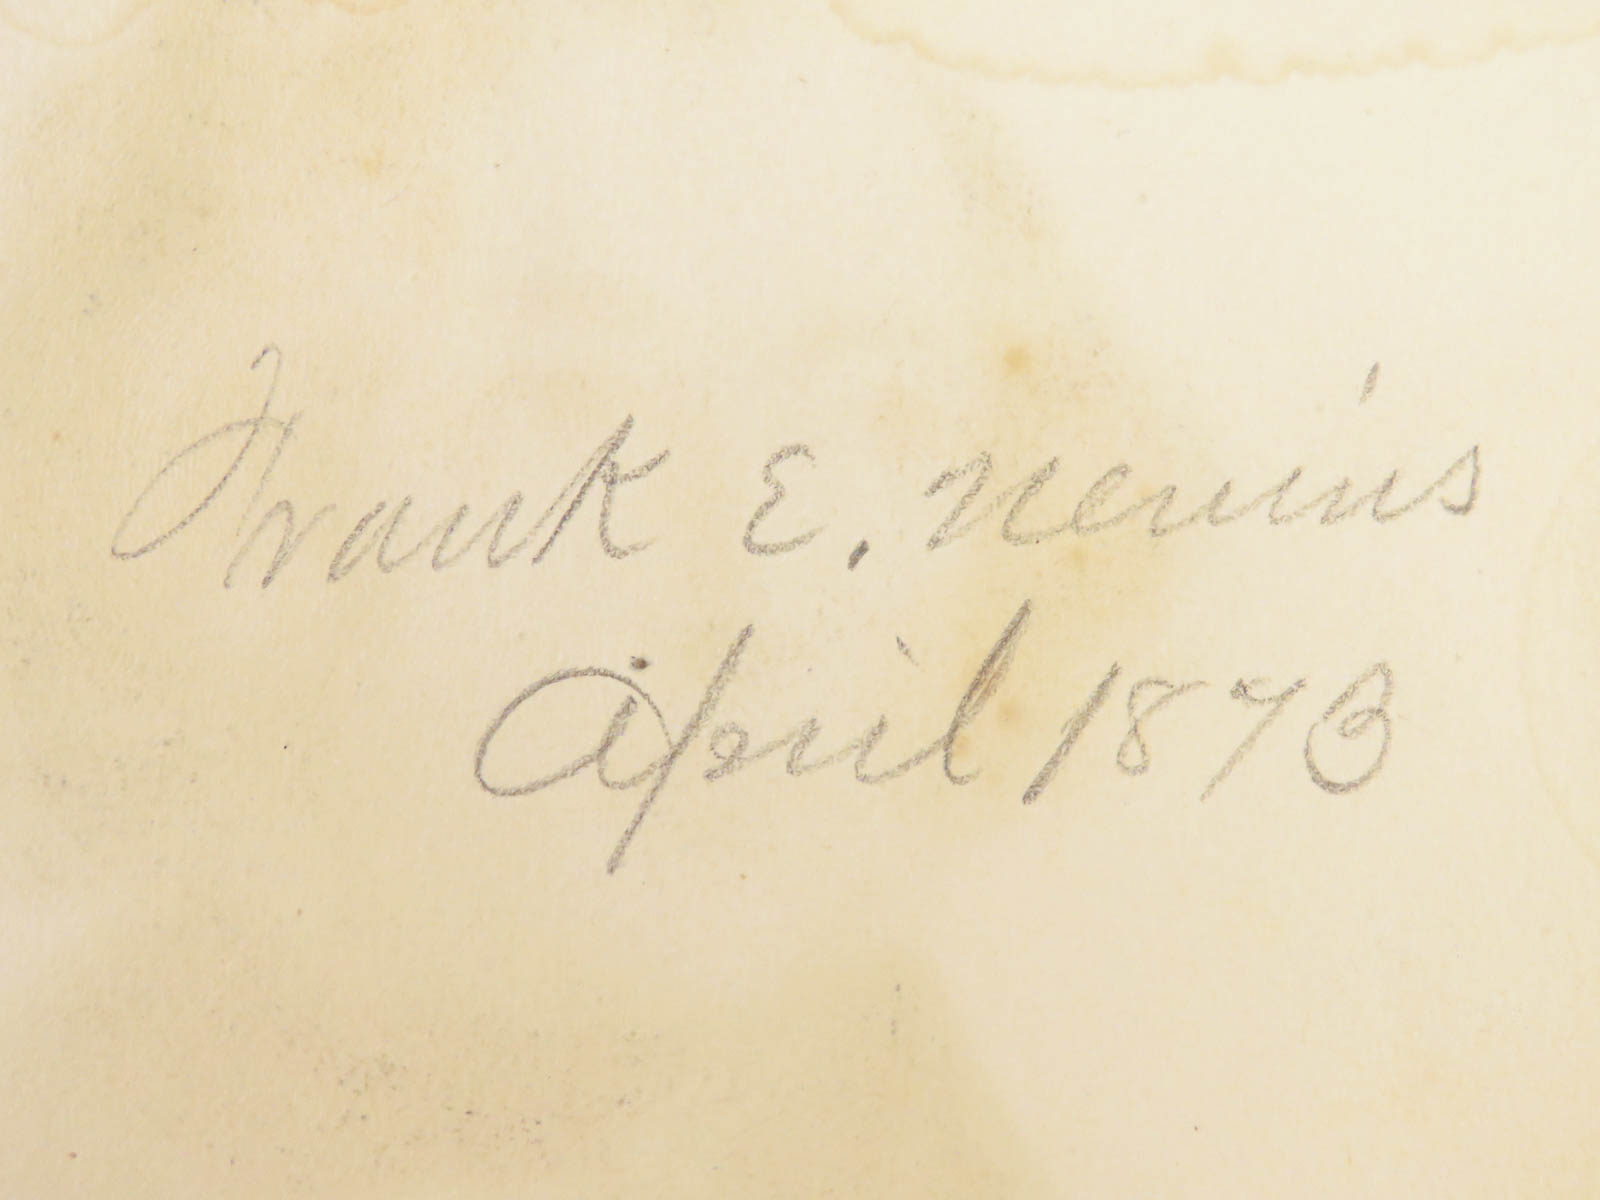 Frank E. Nevins
April 1873